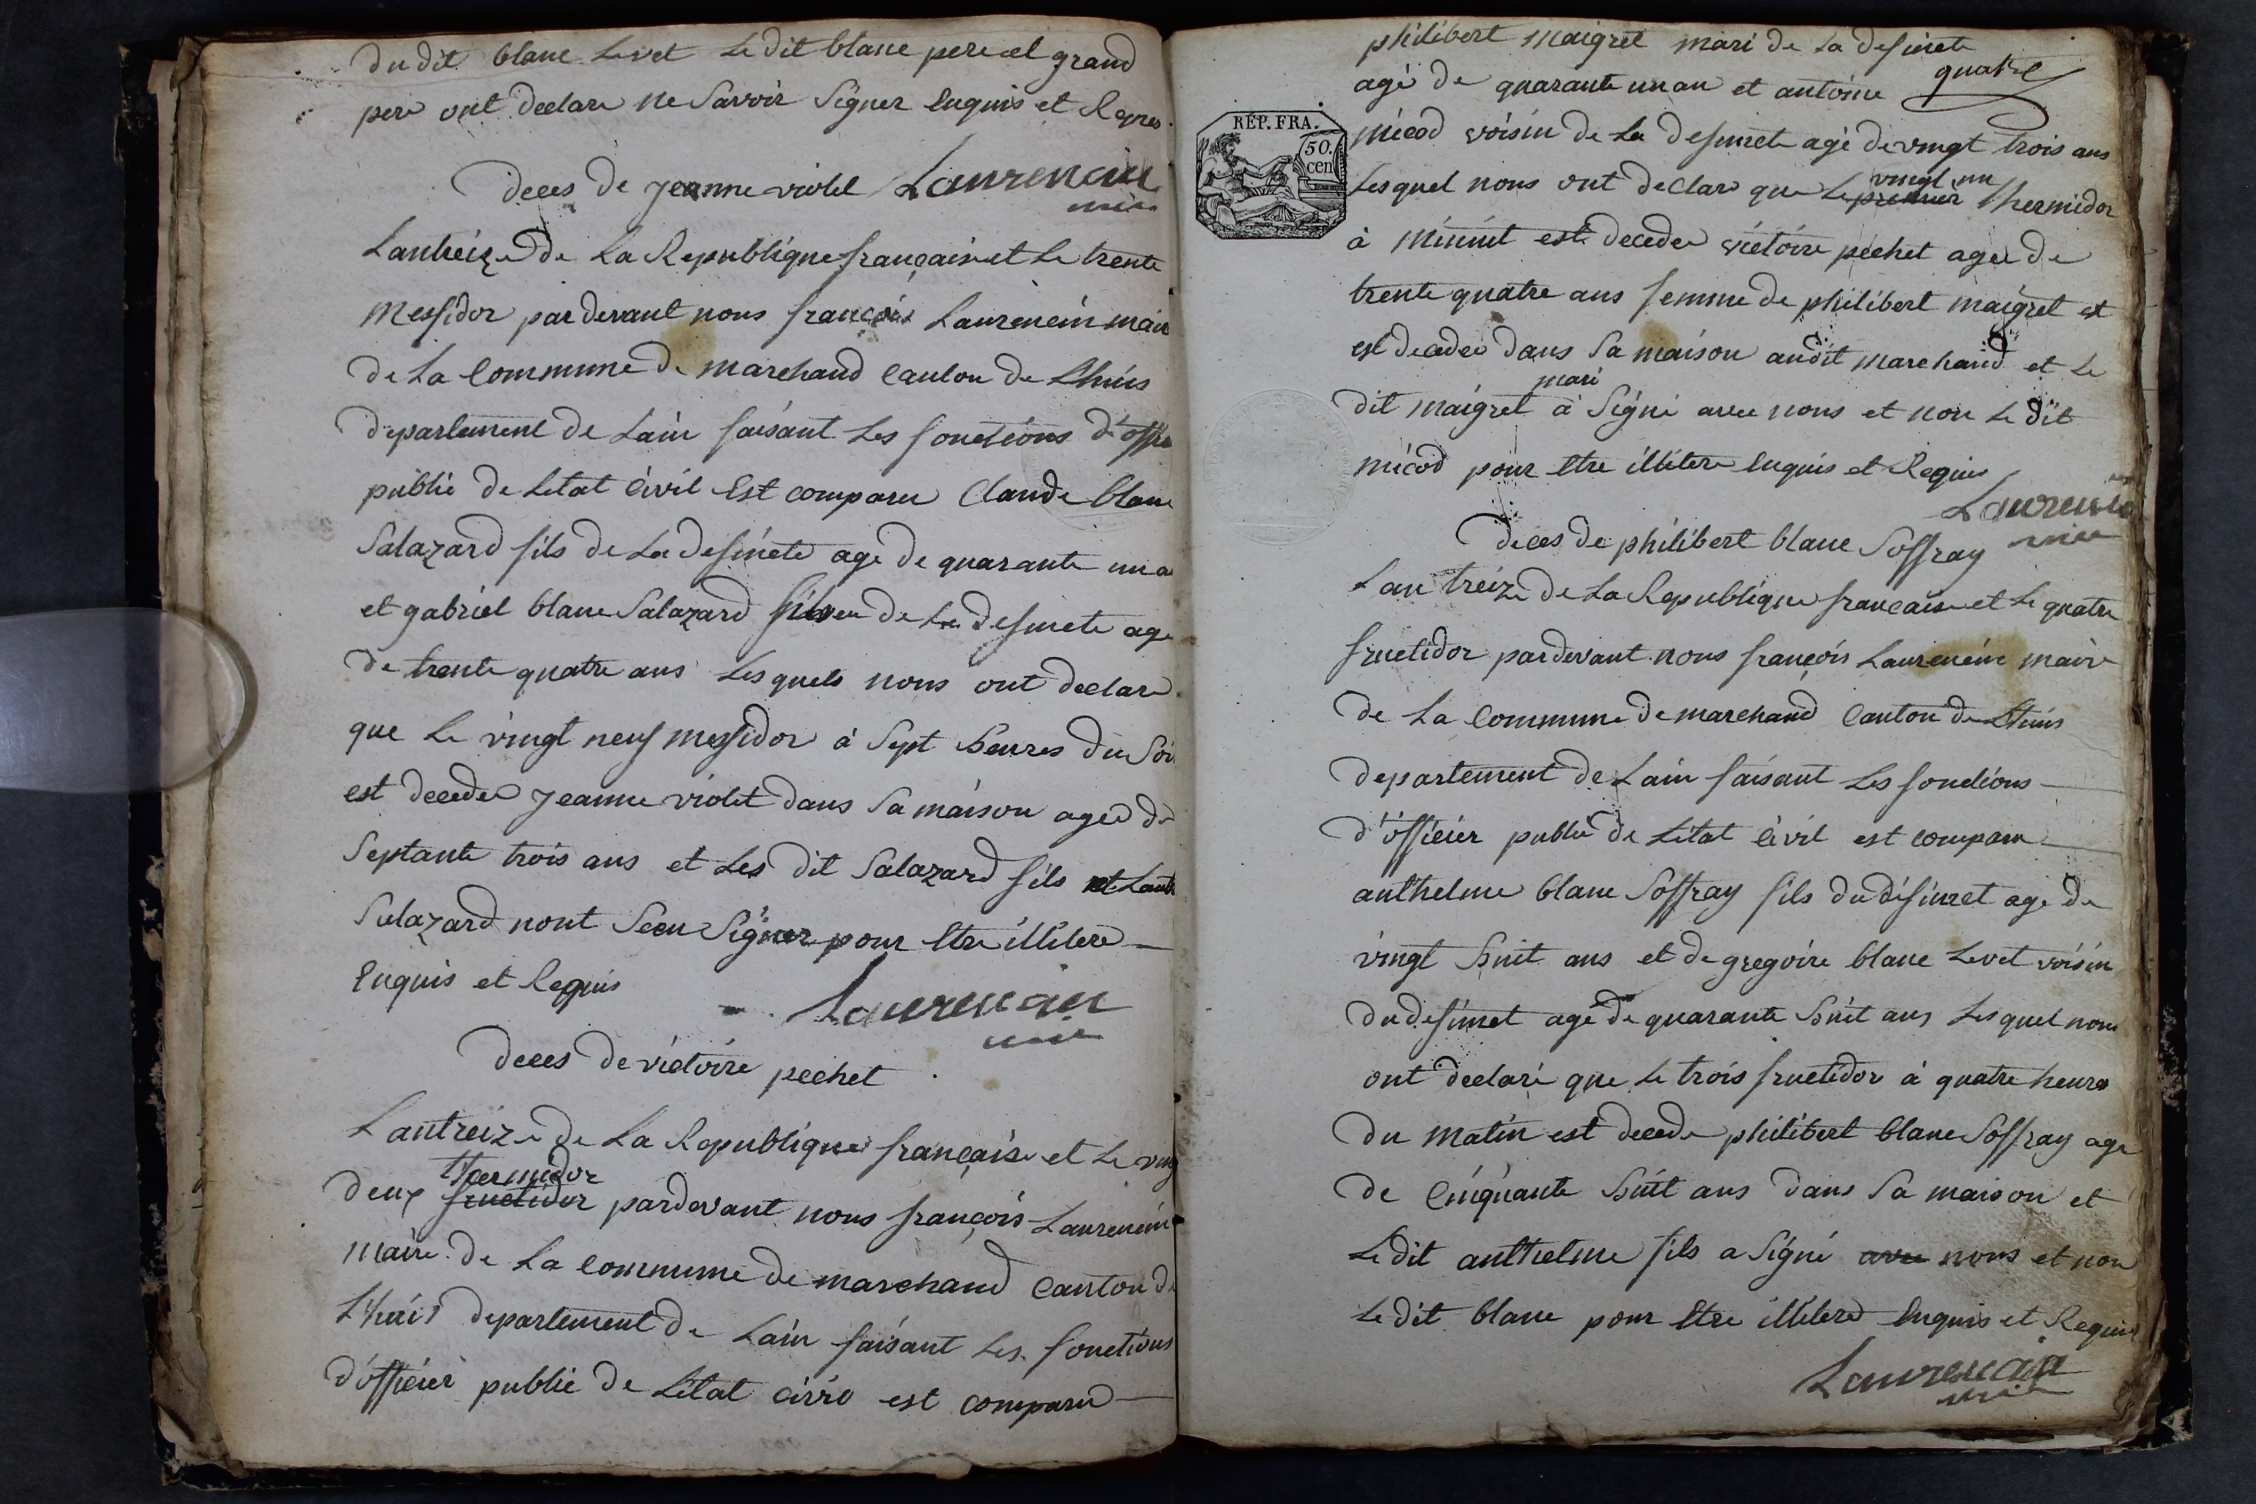 du dit blanc Levet Le dit blanc pere et grand
pere ont declare ne Savoir Signer Enquis et Requis
deces de jeanne violet Laurencin
maire
Lantreize de La Republique française et Le trente
Messidor pardevant nous françois Laurencin maire
de La Commune de marchand Canton de Lhuis
departement de Lain faisant Les fonctions d'office
public de Letat Civil Est comparu Claude blanc
Salazard fils de La defunete age de quarante un a
et gabriel blanc Salazard de La defunete age
de trente quatre ans Lesquels nous ont declare
que Le vingt neuf messidor à Sept heures du Soir
est decedee jeanne violet dans Sa maison agee de
Septante trois ans et Les dit Salazard fils et Lautre
Salazard nont Sceu Signer pour Etre illitere
Enquis et Requis
Laurencin
maire
deces de victoire pechet
Lantreize de La Republique française et Le ving
thermidor
deux fructidor pardevant nous françois Laurencin
Maire de La Commune de marchand Canton de
Lhuis departement de Lain faisant Les fonctions
d'officier public de Letat civil est comparu
philibert maigret mari de La defunete
quatre
agé de quarante un an et antoine
micod voisin de La defunete agé de vingt trois ans
RÉP. FRA.
50.
cen
vingt un
Lesquel nous ont declare que Le premier thermidor
à Minuit est decedee victoire pechet agee de
trente quatre ans femme de philibert maigret et
est decedee dans Sa maison audit marchand et Le
mari
dit maigret à Signé avec nous et non Le dit
micod pour Etre illitere Enquis et Requis
Laurencin
maire
deces de philibert blanc Soffray
Lan treize de La Republique francaise et Le quatre
fructidor pardevant nous françois Laurencin maire
de La Commune de marchand Canton de Lhuis
departement de Lain faisant Les fonctions
d'officier public de Letat civil est comparu
anthelme blanc Soffray fils du défunet age de
vingt huit ans et de gregoire blanc Levet voisin
du defunet agé de quarante huit ans Lesquel nous
ont declaré que Le trois fructidor à quatre heures
du Matin est decede philibert blanc Soffray age
de Cinquante huit ans dans Sa maison et
Le dit anthelme fils a Signé avec nous et non
Le dit blanc pour Etre illitere Enquis et Requis
Laurencin
maire